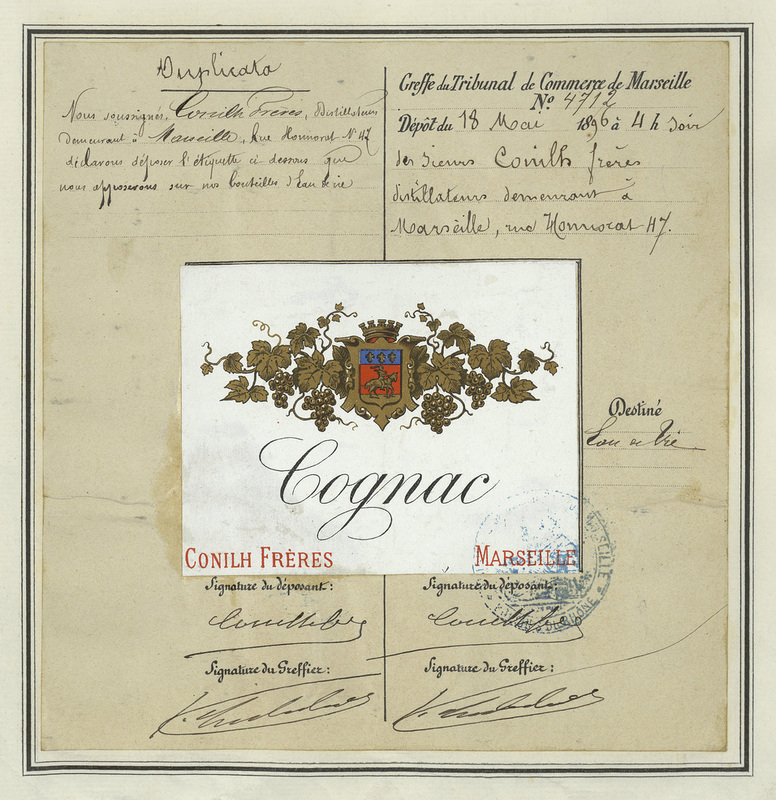 Duplicata
Nous soussignés, Conilh Frères, Distillateurs
demeurant à Marseille, Rue Honnorat N° 47
déclarons déposer l'étiquette ci dessous que
nous apposerons sur nos bouteilles d'Eau de vie
Greffe du Tribunal de Commerce de Marseille
N° 4712
Dépôt du 18 Mai 1896 à 4 h Soir
des Sieurs Conilh frères
distillateurs demeurant à
Marseille, rue Honnorat 47.
Cognac
CONILH FRÈRES
MARSEILLE
Destiné
Eau de Vie
Signature du déposant:
Signature du déposant:
Conilh frères
Conilh frères
Signature du Greffier:
Signature du Greffier:
MARSEILLE